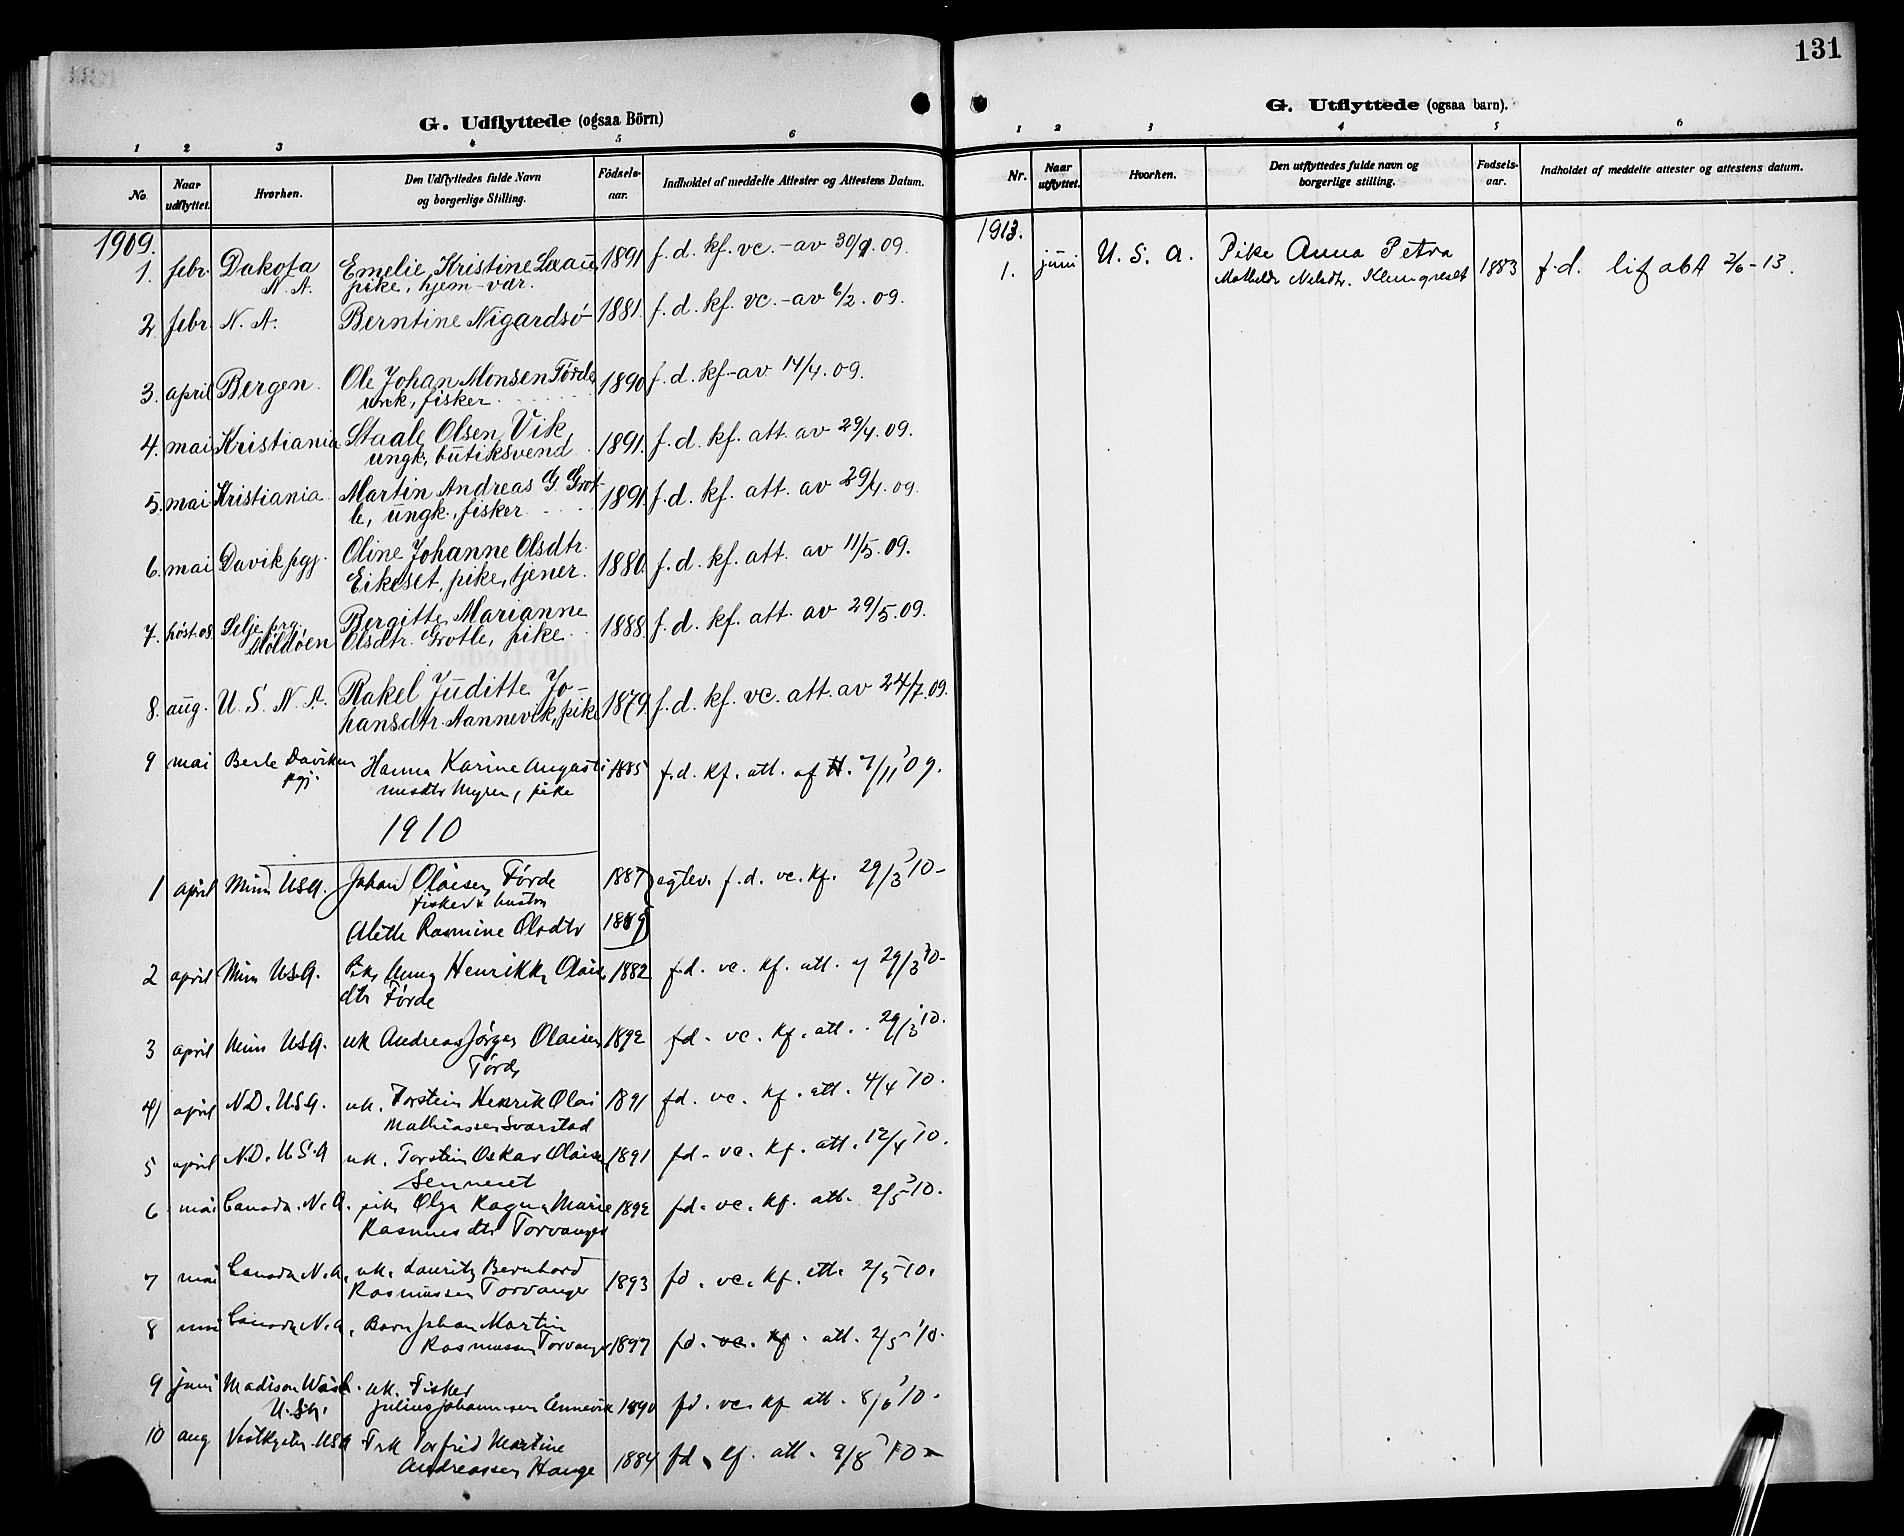 G. Udflyttede (ogsaa Börn)
1 2 3 4 5 6
No. Naar udflyttet. Hvorhen. Den Udflyttedes fulde Navn og borgerlige Stilling. Födsels-aar. Indholdet af meddelte Attester og Attestens Datum.
1909.
1. febr. Dakota Emelie Kristine 1891 f. d. kf. vc. - av 30/1 09.
N. A. pike, hjem-vær.
2. febr. N. A. Berntine Nigardsö 1881. f. d. kf. vc. - av 6/2. 09.
3. april Bergen. Ole Johan Monsen Förde 1890 f. d. kf - av 14/4. 09.
unk, fisker
4. mai Kristiania Staale Olsen Vik, 1891. f. d. kf. att. av 29/4. 09.
ungk, butiksvend
5. mai Kristiania Martin Andreas G. Grot- 1891. f. d. kf. att. av 29/4. 09.
le, ungk., fisker
6. mai Davik pgj. Oline Johanne Olsdtr. 1880. f. d. kf. att. av 11/5. 09.
Eikeset, pike, tjener.
7. höst. 08. Selje prg. Bergitte Marianne 1888. f. d. kf. att. av 29/5. 09.
Moldöen Olsdtr. Grotle, pike
8. aug. U. S. N. A. Rakel Juditte Jo- 1879. f. d. kf. vc. att. av 24/7. 09.
hansdtr. Aannevik, pike
9 mai Berle Daviken Hanna Karine Augusti 1885 f. d. kf. att. af 7/11 09.
pgj. nusdtr Myren, pike
1910
1 april Minn USA. Johan Olaisen Förde 1887 f. d. vc. kf. 29/3 10-
fisker & hustru
Alette Rasmine Olsdtr 1889
2 april Minn USA. Pike Anna Henrikke Olais 1882 f. d. vc. kf. att. 29/3 10-
dtr Förde
3 april Minn USA. uk Andreas Jörgen Olaisen 1892 fd. vc. kf. att. 29/3 10.
Förde
4 april N.D. USA. uk. Torstein Henrik Olai 1891 fd. vc. kf. att. 4/4 10.
Mathiassen Svarstad
5 april N.D. U.S.A uk. Torstein Oskar Olaisen 1891 fd. vc. kf. att. 12/4 10.
Senneset
6 mai Canada. N. A. pike Olga Ragna Marie 1892 fd. vc. kf. att. 2/5 10.
Rasmusdtr Torvanger
7 mai Canada N. A. uk. Lauritz Bernhard 1893 fd. vc. kf. att. 2/5 10.
Rasmussen Torvanger
8 mai Canada N. A. Barn Johan Martin
Rasmussen Torvanger 1897 fd. vc. kf. att. 2/5 10.
9 juni Madison U.S.A. uk. Fisker
Julius Johannesen Annevik 1890 fd. vc. kf att. 8/6 10.
10 aug USA Torfrid Martine
Andreassen Hauge 1884 fd. att. 9/8 10
131
G. Utflyttede (ogsaa barn).
1 2 3 4 5 6
Nr. Naar utflyttet. Hvorhen. Den utflyttedes fulde navn og borgerlige stilling. Fødsels-aar. Indholdet af meddelte attester og attestens datum.
1913.
1. juni U. S. A. Pike Anna Petra
Mathilde Nilsdtr. 1883 f. d. 2/6-13.